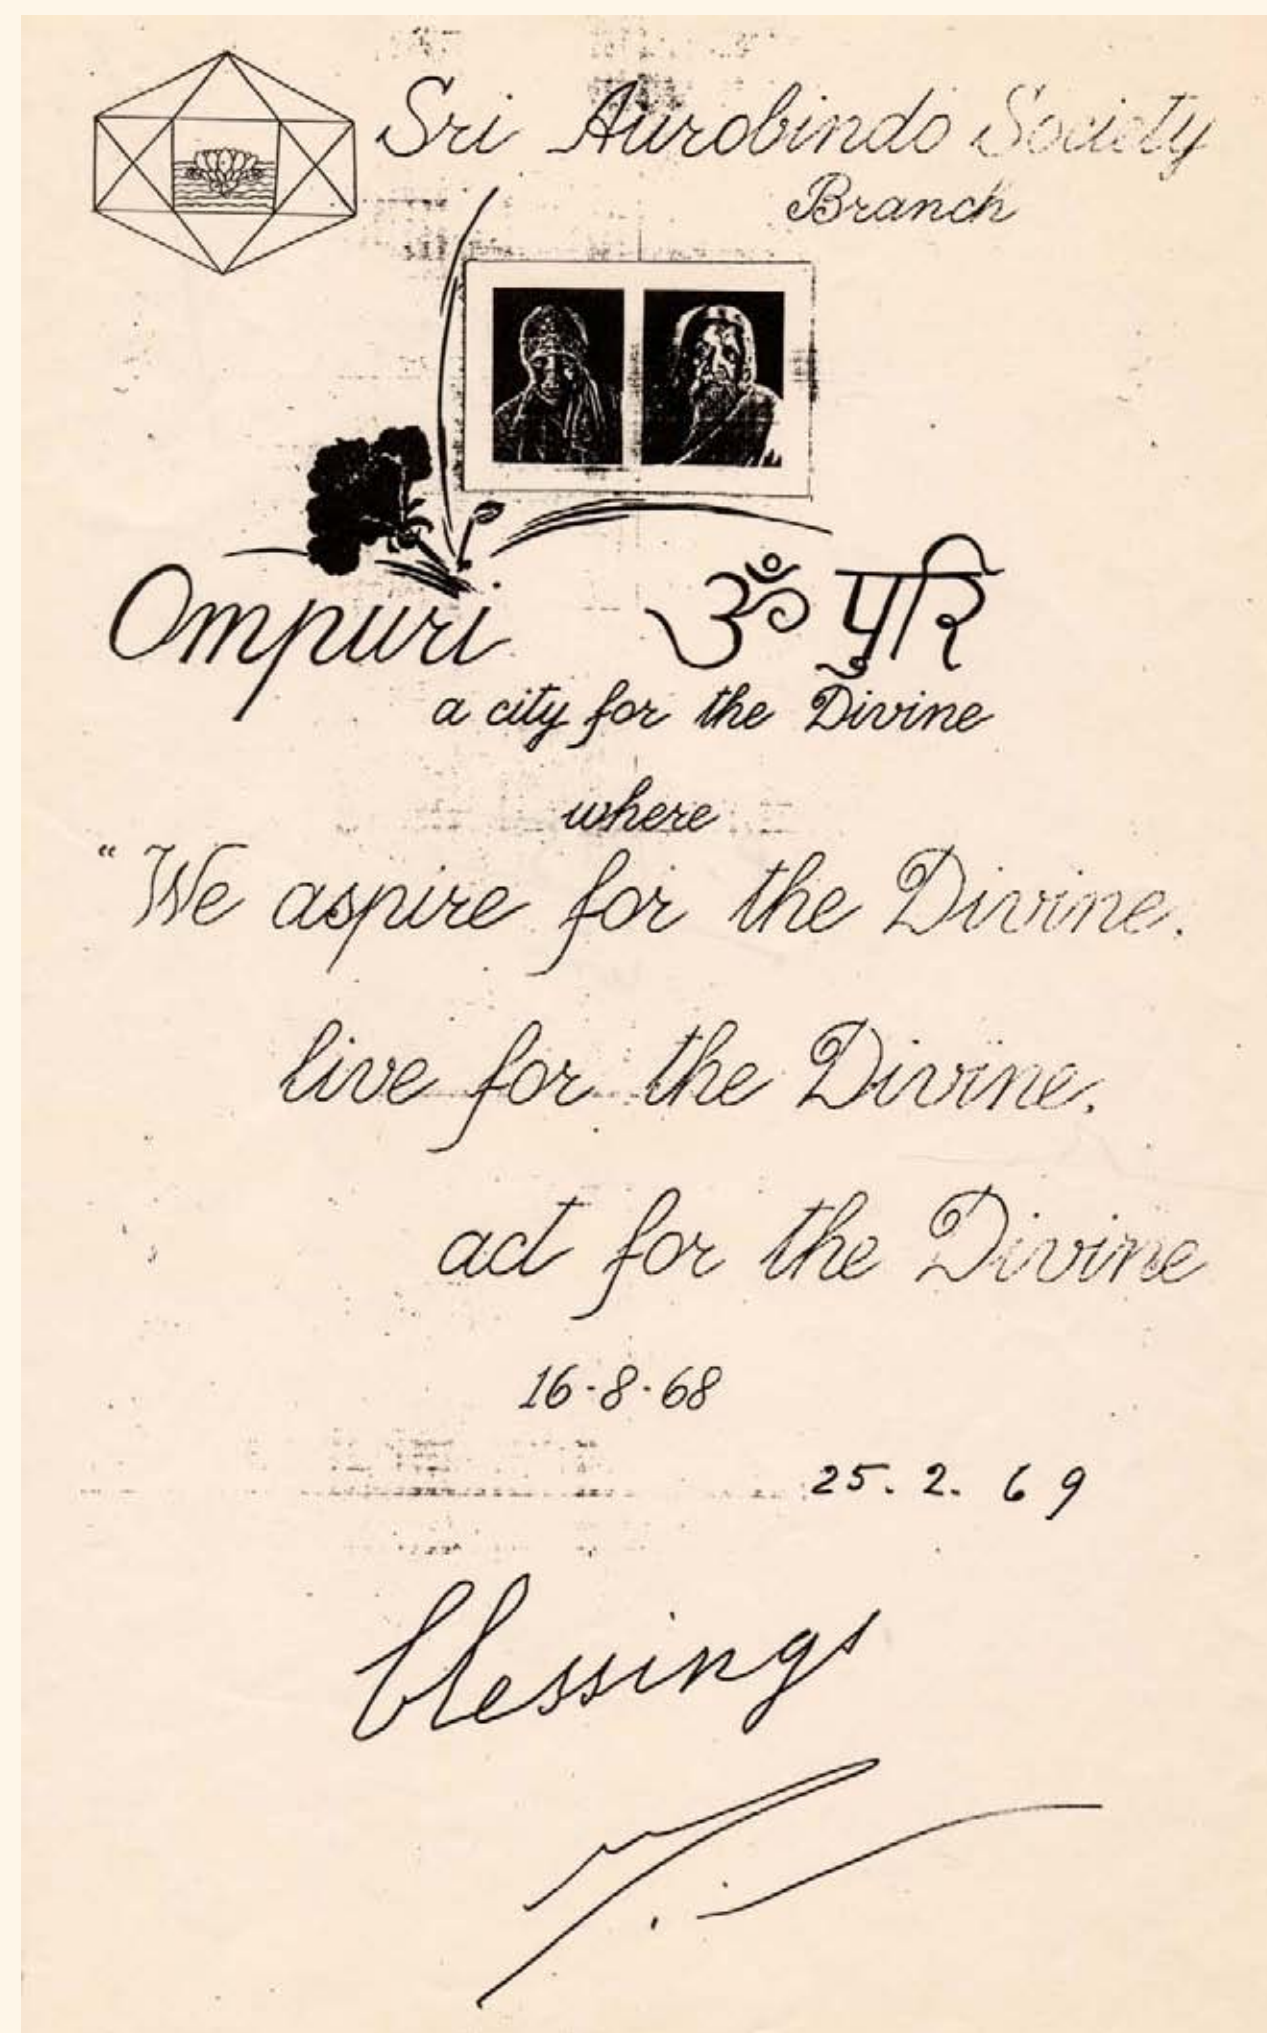 Sri Aurobindo Society
Branch
Ompuri ॐ पुरि
a city for the Divine
where
"We aspire for the Divine.
live for the Divine.
act for the Divine
16.8.68
25.2.69
blessings